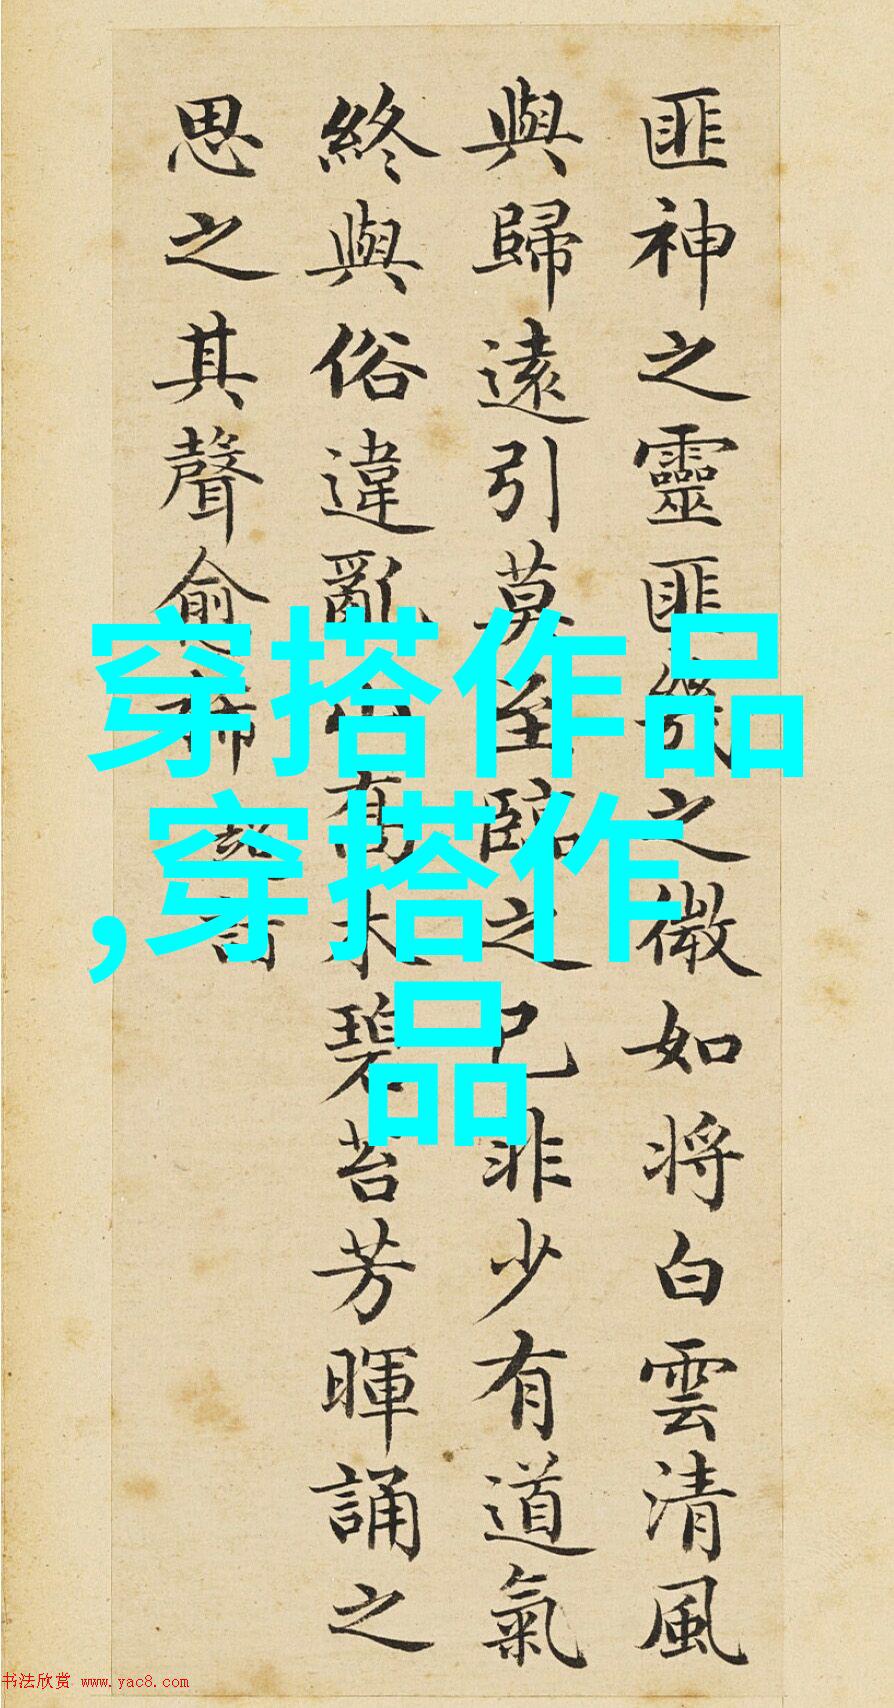 匪神之靈匪之微如将白雲清風
與歸遠引莫至臨之已非少有道氣
終與俗違亂高木碧苔芳暉誦之
思之其聲愈
穿搭作品
,穿搭作
品
书法欣赏 www.yac8.com